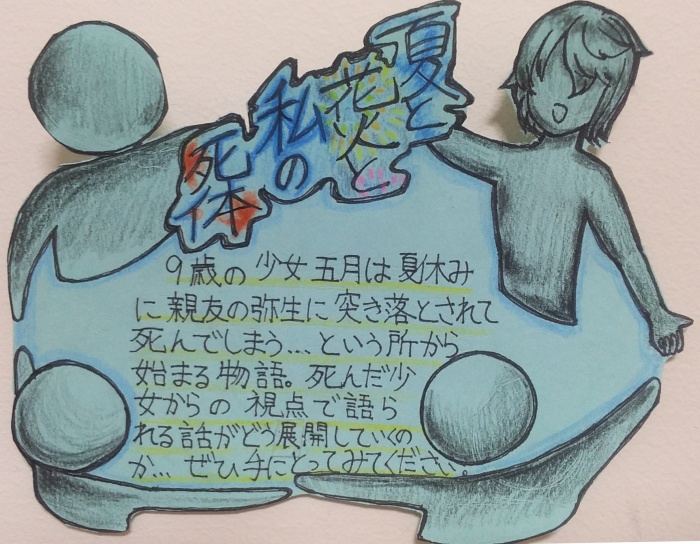 夏と
花火と
私の
死体
9歳の少女五月は夏休み
に親友の弥生に突き落とされて
死んでしまう…という所から
始まる物語。死んだ少
女からの視点で語ら
れる話がどう展開していくの
か…ぜひ手にとってみてください。